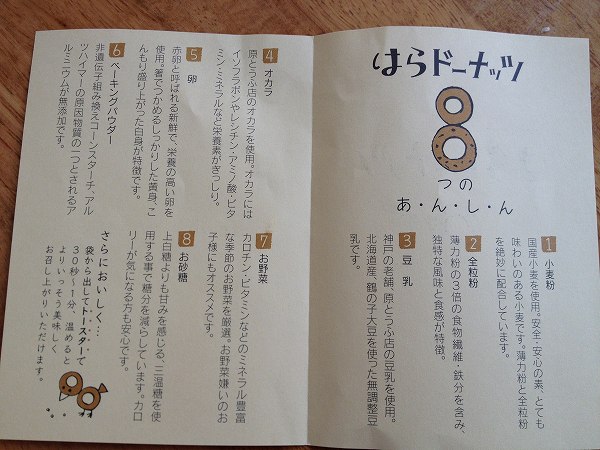 はらドーナッツ
8
つの
あ・ん・し・ん
1 小麦粉
国産小麦を使用。安全・安心の素、とても
味わいのある小麦です。薄力粉と全粒粉
を絶妙に配合しています。
2 全粒粉
薄力粉の3倍の食物繊維・鉄分を含み、
独特な風味と食感が特徴。
3 豆乳
神戸の老舗、原とうふ店の豆乳を使用。
北海道産 鶴の子大豆を使った無調整豆
乳です。
4 オカラ
原とうふ店のオカラを使用。オカラには
イソフラボンやレシチン・アミノ酸・ビタ
ミン・ミネラルなど栄養素がぎっしり。
5 卵
赤卵と呼ばれる新鮮で、栄養の高い卵を
使用。箸でつかめるしっかりした黄身、こ
んもり盛り上がった白身が特徴です。
6 ベーキングパウダー
非遺伝子組み換えコーンスターチ、アル
ツハイマーの原因物質の一つとされるア
ルミニウムが無添加です。
7 お野菜
カロチン・ビタミンなどのミネラル豊富
な季節のお野菜を厳選。お野菜嫌いのお
子様にもオススメです。
8 お砂糖
上白糖よりも甘みを感じる、三温糖を使
用する事で糖分を減らしています。カロ
リーが気になる方も安心です。
さらにおいしく…
袋から出してトースターで
30秒〜1分、温めると
よりいっそう美味しく
お召し上がりいただけます。